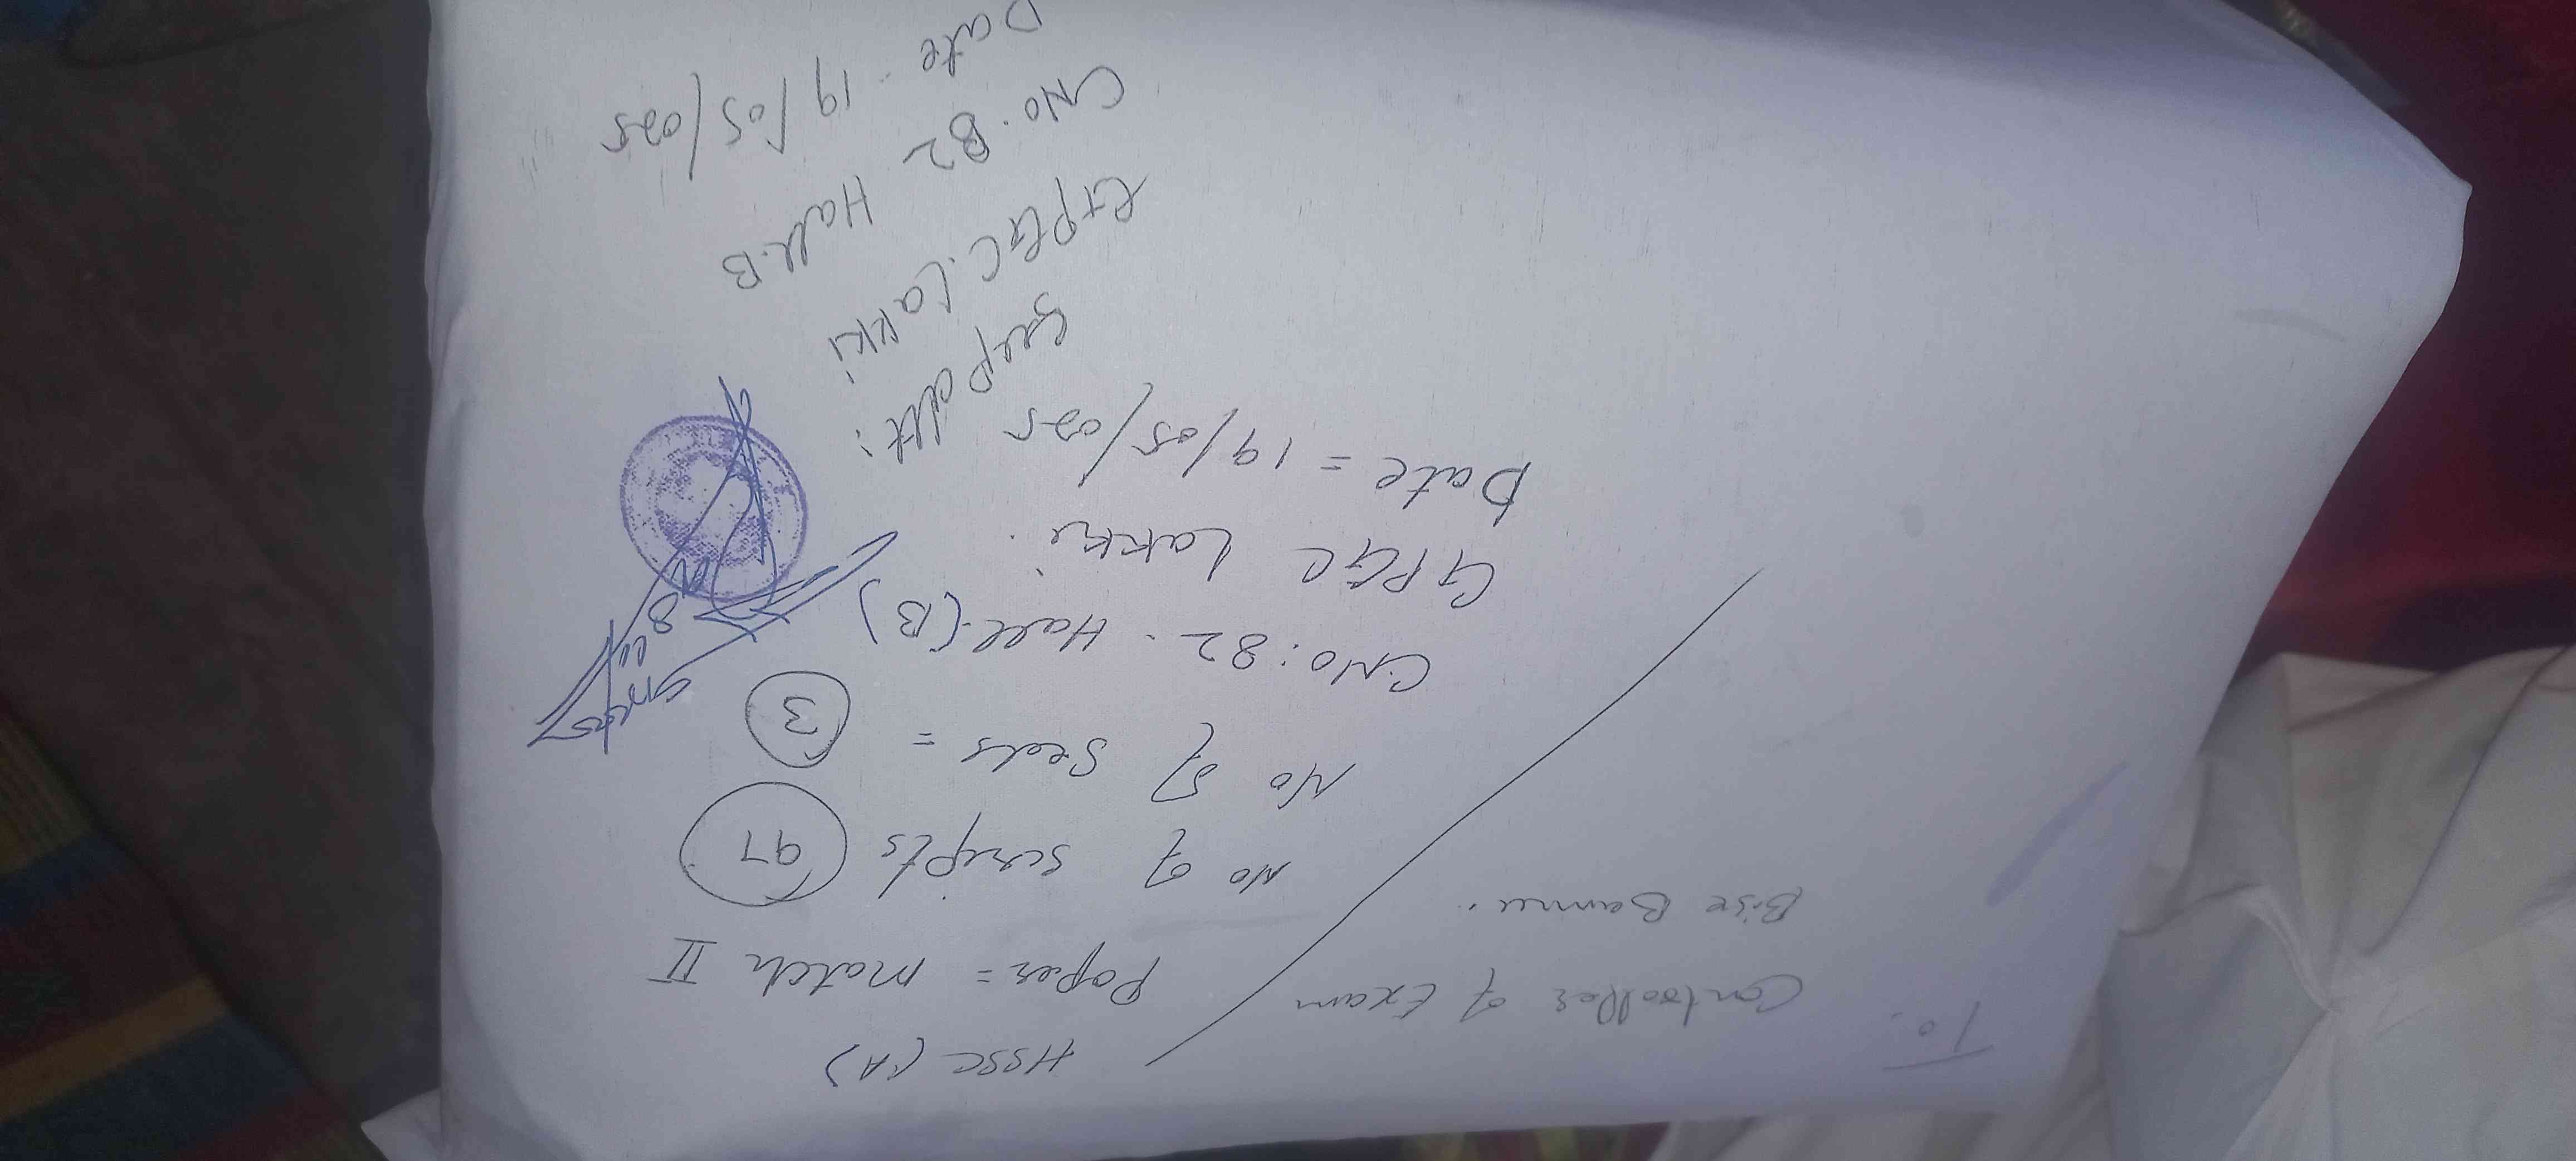 To.
Controller of Exam
Bise Bannu.
HSSC (A)
Paper = Match II
No of scripts 97
No of Seals = 3
C.NO: 82. Hall.(B)
GPGC Lakki.
Date = 19/05/025
Supdtt:
GPGC. Lakki
C.NO. 82 Hall.B
Date. 19/05/025